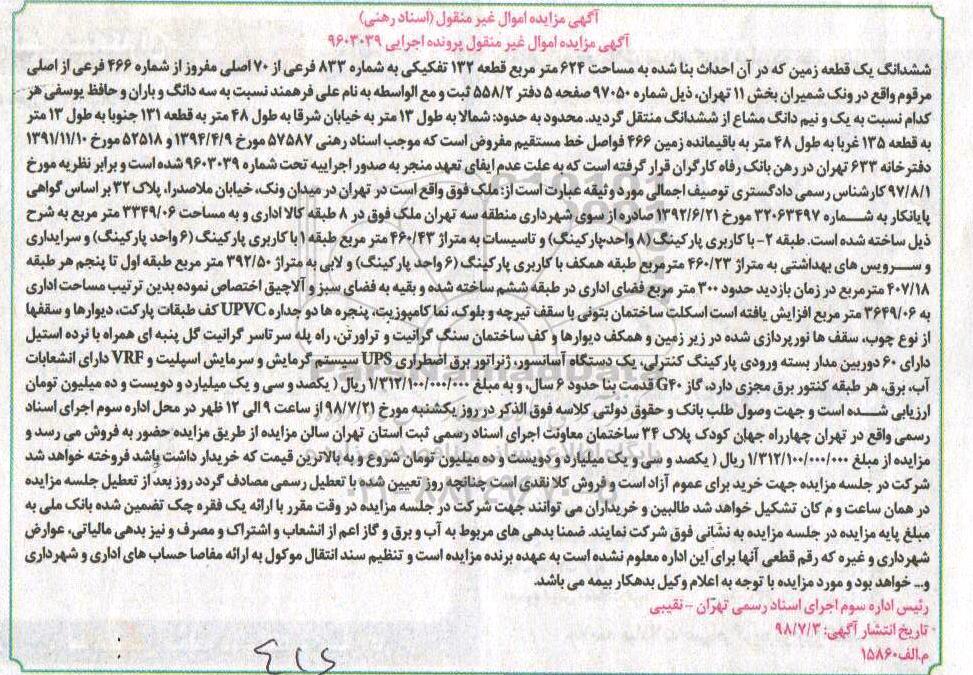 آگهی مزایده اموال غیر منقول (اسناد رهنی)
آگهی مزایده اموال غیر منقول پرونده اجرایی ۹۶۰۳۰۳۹
ششدانگ یک قطعه زمین که در آن احداث بنا شده به مساحت ۶۲۴ متر مربع قطعه ۱۳۲ تفکیکی به شماره ۸۳۳ فرعی از ۷۰ اصلی مفروز از شماره ۴۶۶ فرعی از اصلی
مرقوم واقع در ونک شمیران بخش ۱۱ تهران، ذیل شماره ۹۷۰۵۰ صفحه ۵ دفتر ۵۵۸/۲ ثبت و مع الواسطه به نام علی فرهمند نسبت به سه دانگ و باران و حافظ یوسفی هر
کدام نسبت به یک و نیم دانگ مشاع از ششدانگ منتقل گردید. محدود به حدود: شمالا به طول ۱۳ متر به خیابان شرقا به طول ۴۸ متر به قطعه ۱۳۱ جنوبا به طول ۱۳ متر
به قطعه ۱۳۵ غربا به طول ۴۸ متر به باقیمانده زمین ۴۶۶ فواصل خط مستقیم مفروض است که موجب اسناد رهنی ۵۷۵۸۷ مورخ ۱۳۹۴/۴/۹ و ۵۲۵۱۸ مورخ ۱۳۹۱/۱۱/۱۰
دفترخانه ۶۳۳ تهران در رهن بانک رفاه کارگران قرار گرفته است که به علت عدم ایفای تعهد منجر به صدور اجراییه تحت شماره ۹۶۰۳۰۳۹ شده است و برابر نظریه مورخ
۹۷/۸/۱ کارشناس رسمی دادگستری توصیف اجمالی مورد وثیقه عبارت است از: ملک فوق واقع است در تهران در میدان ونک، خیابان ملاصدرا، پلاک ۳۲ بر اساس گواهی
پایانکار به شماره ۳۲۰۶۳۴۹۷ مورخ ۱۳۹۲/۶/۲۱ صادره از سوی شهرداری منطقه سه تهران ملک فوق در ۸ طبقه کالا اداری و به مساحت ۳۳۴۹/۰۶ متر مربع به شرح
ذیل ساخته شده است. طبقه ۲- با کاربری پارکینگ (۸ واحد پارکینگ) و تاسیسات به متراژ ۴۶۰/۴۳ متر مربع طبقه ۱ با کاربری پارکینگ (۶ واحد پارکینگ) و سرایداری
و سرویس های بهداشتی به متراژ ۴۶۰/۲۳ مترمربع طبقه همکف با کاربری پارکینگ (۶ واحد پارکینگ) و لابی به متراژ ۳۹۲/۵۰ متر مربع طبقه اول تا پنجم هر طبقه
۴۰۷/۱۸ مترمربع در زمان بازدید حدود ۳۰۰ متر مربع فضای اداری در طبقه ششم ساخته شده و بقیه به فضای سبز و آلاچیق اختصاص نموده بدین ترتیب مساحت اداری
به ۳۶۴۹/۰۶ متر مربع افزایش یافته است اسکلت ساختمان بتونی با سقف تیرچه و بلوک، نما کامپوزیت، پنجره ها دو جداره UPVC کف طبقات پارکت، دیوارها و سقفها
از نوع چوب، سقف ها نورپردازی شده در زیر زمین و همکف دیوارها و کف ساختمان سنگ گرانیت و تراورتن، راه پله سرتاسر گرانیت گل پنبه ای همراه با نرده استیل
دارای ۶۰ دوربین مدار بسته ورودی پارکینگ کنترلی، یک دستگاه آسانسور، ژنراتور برق اضطراری UPS سیستم گرمایش و سرمایش اسپلیت و VRF دارای انشعابات
آب، برق، هر طبقه کنتور برق مجزی دارد، گاز G۴۰ قدمت بنا حدود ۶ سال، و به مبلغ ۱/۳۱۲/۱۰۰/۰۰۰/۰۰۰ ریال ( یکصد و سی و یک میلیارد و دویست و ده میلیون تومان
ارزیابی شده است و جهت وصول طلب بانک و حقوق دولتی کلاسه فوق الذکر در روز یکشنبه مورخ ۹۸/۷/۲۱ از ساعت ۹ الی ۱۲ ظهر در محل اداره سوم اجرای اسناد
رسمی واقع در تهران چهارراه جهان کودک پلاک ۳۴ ساختمان معاونت اجرای اسناد رسمی ثبت استان تهران سالن مزایده از طریق مزایده حضور به فروش می رسد و
مزایده از مبلغ ۱/۳۱۲/۱۰۰/۰۰۰/۰۰۰ ریال ( یکصد و سی و یک میلیارد و دویست و ده میلیون تومان شروع و به بالاترین قیمت که خریدار داشت باشد فروخته خواهد شد
شرکت در جلسه مزایده جهت خرید برای عموم آزاد است و فروش کلا نقدی است چنانچه روز تعیین شده با تعطیل رسمی مصادف گردد روز بعد از تعطیل جلسه مزایده
در همان ساعت و م کان تشکیل خواهد شد طالبین و خریداران می توانند جهت شرکت در جلسه مزایده در وقت مقرر با ارائه یک فقره چک تضمین شده بانک ملی به
مبلغ پایه مزایده در جلسه مزایده به نشانی فوق شرکت نمایند. ضمنا بدهی های مربوط به آب و برق و گاز اعم از انشعاب و اشتراک و مصرف و نیز بدهی مالیاتی، عوارض
شهرداری و غیره که رقم قطعی آنها برای این اداره معلوم نشده است به عهده برنده مزایده است و تنظیم سند انتقال موکول به ارائه مفاصا حساب های اداری و شهرداری
و... خواهد بود و مورد مزایده با توجه به اعلام وکیل بدهکار بیمه می باشد.
رئیس اداره سوم اجرای اسناد رسمی تهران - نقیبی
تاریخ انتشار آگهی: ۹۸/۷/۳
م.الف ۱۵۸۶۰